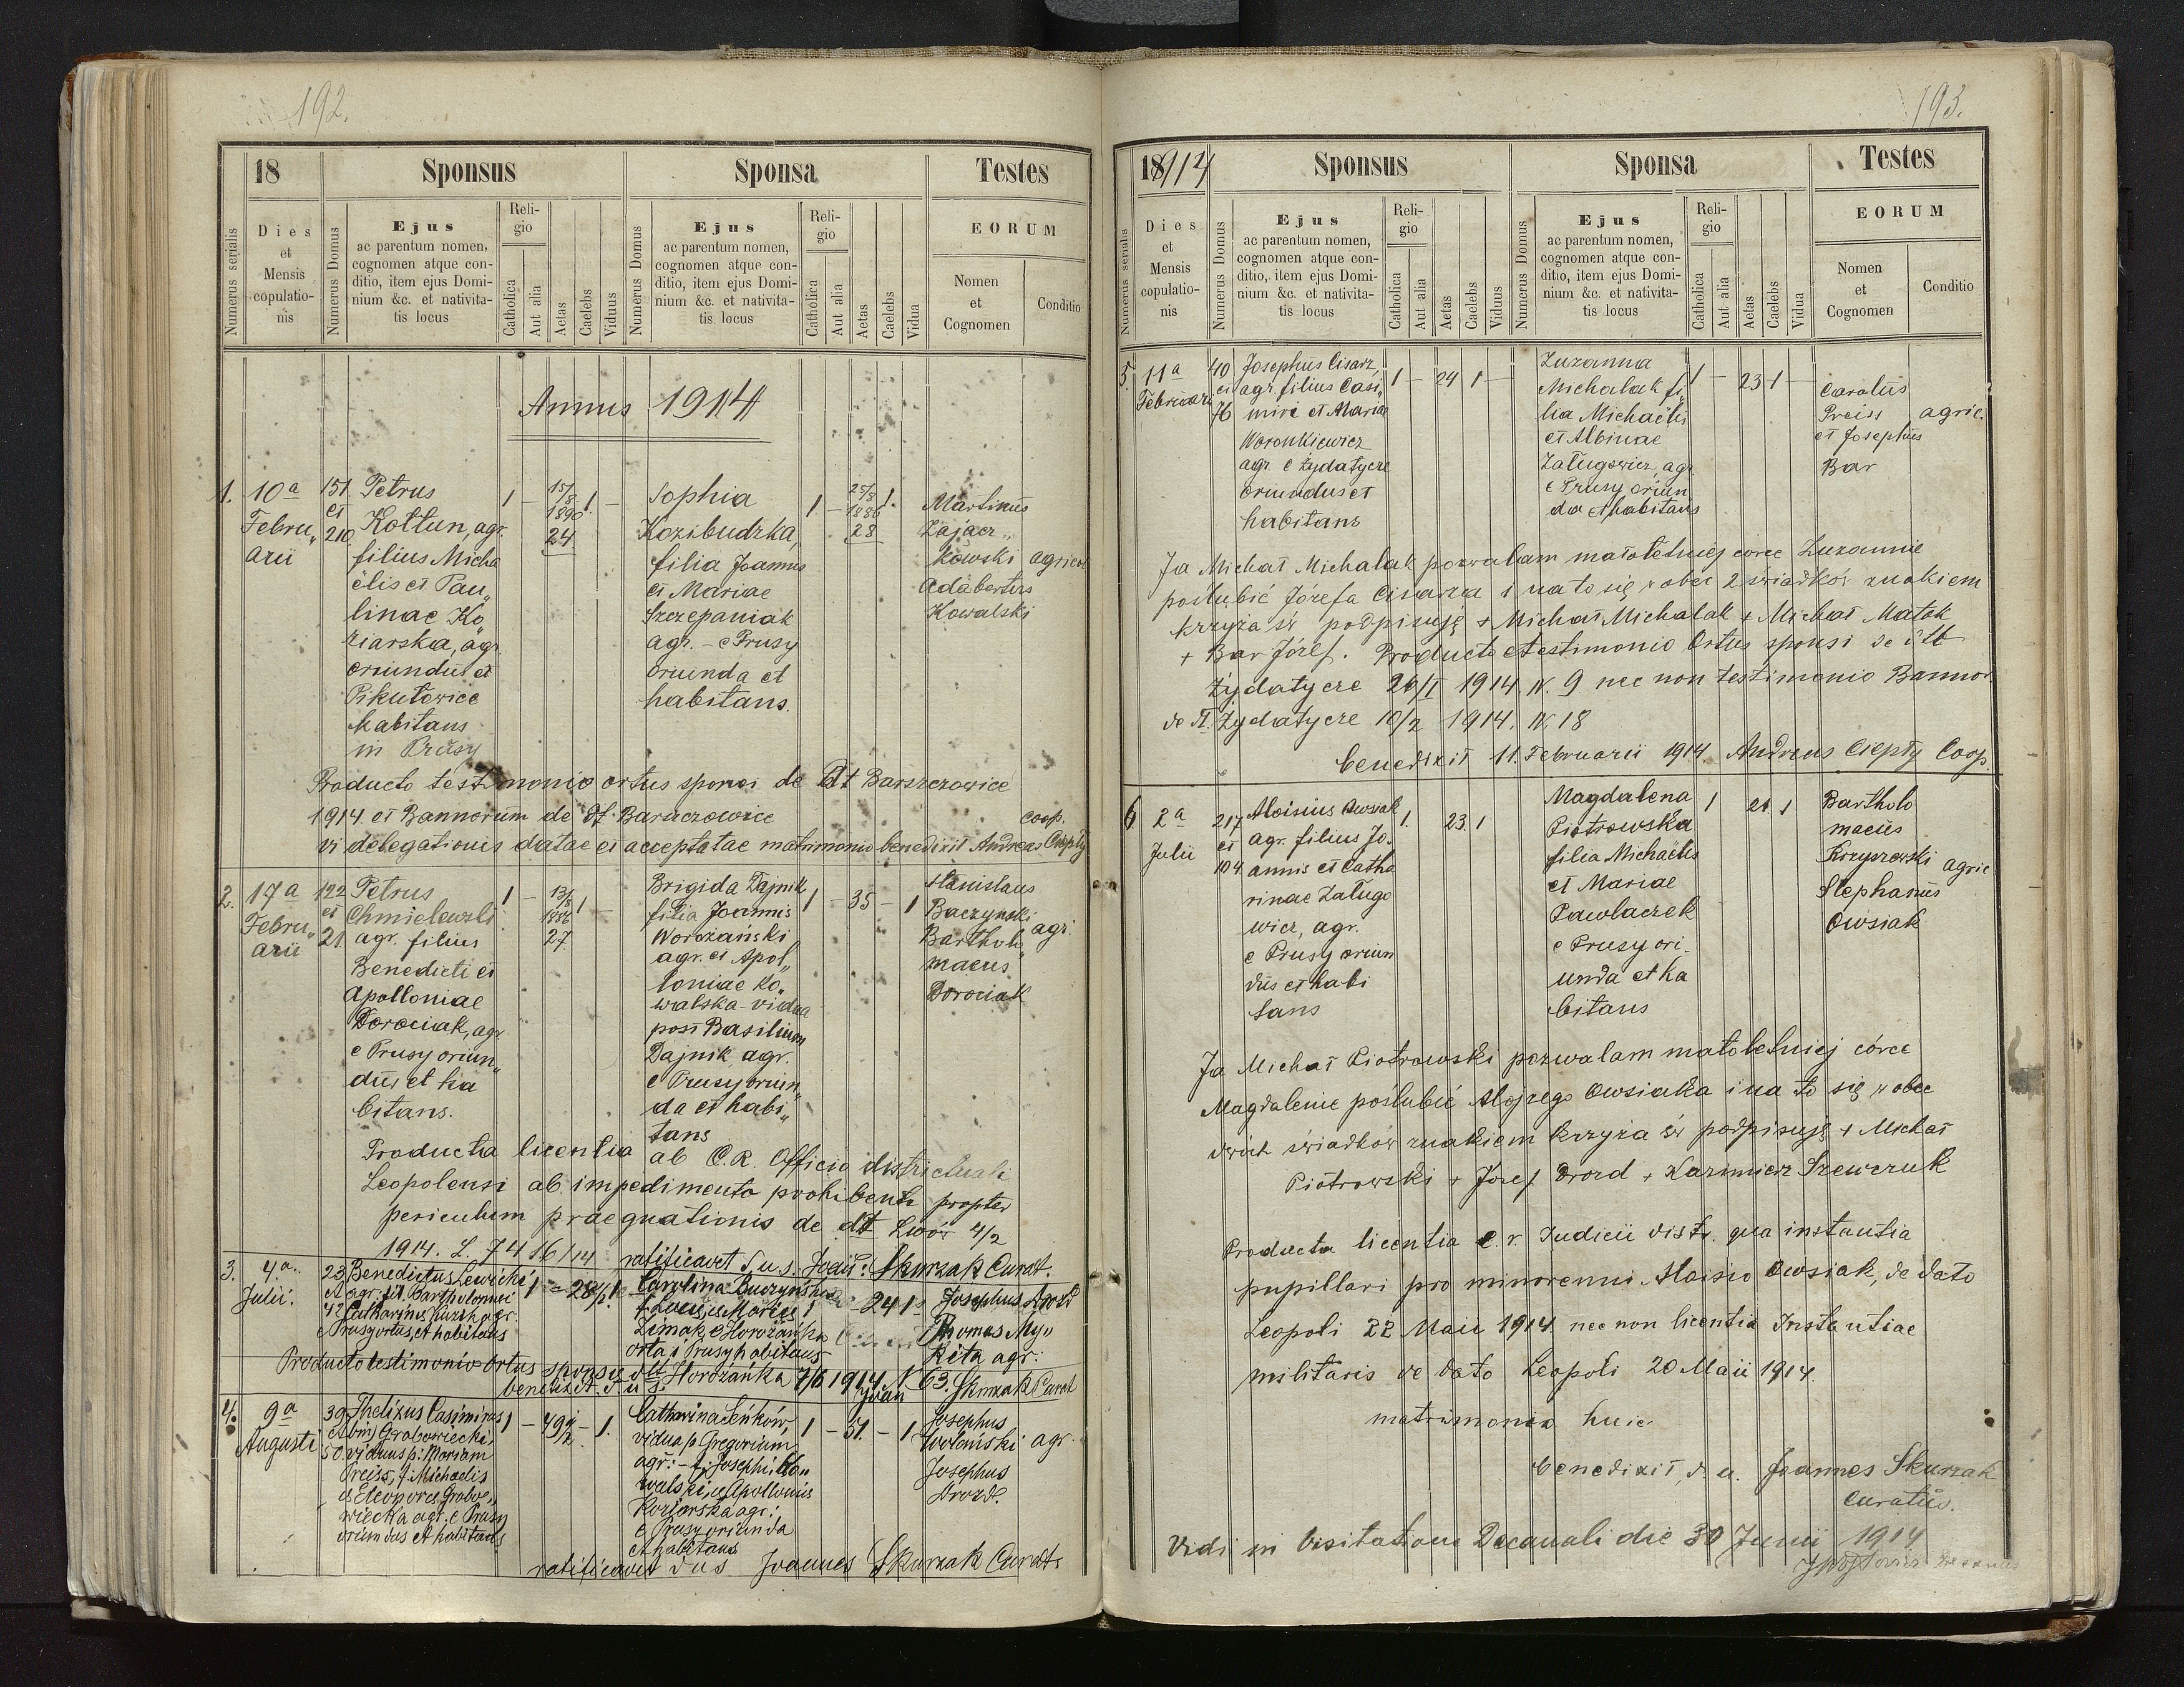 192.
18
Sponsus
Sponsa
Testes
Numerus serialis
Dies
et
Mensis
copulatio-
nis
Numerus Domus
Ejus
ac parentum nomen,
cognomen atque con-
ditio, item ejus Domi-
nium &c. et nativita-
tis locus
Reli-
gio
Catholica
Aut alia
Aetas
Caelebs
Viduus
Numerus Domus
Ejus
ac parentum nomen,
cognomen atque con-
ditio, item ejus Domi-
nium &c. et nativita-
tis locus
Reli-
gio
Catholica
Aut alia
Aetas
Caelebs
Vidua
EORUM
Nomen
et
Cognomen
Conditio
Annus 1914
1.
10a
Febru„
arii
151
et
210
Petrus
Kottun, agr.
filius Micha
ëlis et Pau„
linae Ko„
ziarska, agr.
oriundus et
Pikutowice
habitans
in Prusy
1 –
15/8
1890
24
1. –
Sophia
Kozibudzka,
filia Joannis
et Mariae
Szczepaniak
agr. – e Prusy
oriunda et
habitans.
1 –
25/8
1886
28
1.
Martinus
Zajacz„
kowski
Adabertus
Kowalski
agricol
Producto testimonio ortus sponsi de dt Barszczowice
1914 et Bannorum de dt Baraczowice
vi delegationis datae et acceptatae matrimonio benedixit Andreas Ciepły
coop.
2.
17a
Febru„
arii
122
et
21.
Petrus
Chmielewski
agr. filius
Benedicti et
Apolloniae
Dorociak, agr
e Prusy oriun„
dus et ha
bitans.
1 –
13/5
1886
27.
1
Brigida Dajnik
filia Joannis
Worożański
agr. et Apol„
loniae Ko„
walska – vidua
post Basilium
Dajnik agr.
e Prusy oriun„
da et habi„
tans
1 – 35 – 1
Stanislaus
Baczynski
Bartholo„
maeus
Dorociak
agr.
Producta licentia ab C.R. Officio districtuali
Leopolensi ab impedimento prohibenti propter
periculum praegnationis de dt Lwów 4/2
1914. L. 7416/14 ratificavit S.u.s. Joan: Skurzak Curat.
3.
4.a
Julii.
23
et
42
Benedictus Lewicki
agr. fil. Bartholomaei
Catharinis Kurzka agr.
e Prusy ortus, et habitans
1 – 28 1/2 1
Carolina Buczyńska
f. Lucu, e Mariae
Zimak, e Horożanka
orta i Prusy habitans
1 – 24 1
Josephus Drozd
Thomas My„
kita agr.:
Producto testimonio ortus sponsae dtt Horożanka 7/6 1914. N 63. Skurzak Curat
benedixit d u s. Joan
4.
9a
Augusti
39
et
50.
Thelixus Casimirus
binj Grabowiecki,
viduus p: Mariam
Preiss, f. Michaelis
et Eleonorae Grabo„
wiecka agr. e Prusy
oriundus et habitans
1 – 49 1/2 – 1.
Catharina Leńków,
vidua p. Gregorium
agr: – f. Josephi Ko„
walski, e Apolloniis
Koziarska agr.:
e Prusy oriunda
et habitans
1 – 51. – 1
Josephus
Woleński
Josephus
Drozd.
agr.
ratificavit dus Joannes Skurzak Curatus
193.
18914
Sponsus
Sponsa
Testes
Numerus serialis
Dies
et
Mensis
copulatio-
nis
Numerus Domus
Ejus
ac parentum nomen,
cognomen atque con-
ditio, item ejus Domi-
nium &c. et nativita-
tis locus
Reli-
gio
Catholica
Aut alia
Aetas
Caelebs
Viduus
Numerus Domus
Ejus
ac parentum nomen,
cognomen atque con-
ditio, item ejus Domi-
nium &c. et nativita-
tis locus
Reli-
gio
Catholica
Aut alia
Aetas
Caelebs
Vidua
EORUM
Nomen
et
Cognomen
Conditio
5.
11a
Februarii
40
et
76
Josephus Cisarz,
agr. filius Casi„
miri et Mariae
Woronkiewicz
agr. e Żydatycze
oriundus et
habitans
1 – 24 1 –
Zuzanna
Michalak fi„
lia Michaëlis
et Albinae
Załugowicz, agr
e Prusy oriun
da et habitans
1 – 23 1 –
Carolus
Preiss
et Josephus
Bar
agric.
Ja Michał Michalak pozwalam małoletniej córce Zuzannie
poślubić Józefa Cisarza i na to się wobec 2 świadków znakiem
krzyża św podpisuję + Michał Michalak + Michał Matok
+ Bar Józef. Producto testimonio Ortus sponsi de dtt
Żydatycze 20/I 1914. N. 9 nec non testimonio Bannor.
de dt. Żydatycze 10/2 1914. N 18
benedixit 11. Februarii 1914. Andreas Ciepły Coop.
6
2a
Julii
217
et
104
Aloisius Owsiak
agr. filius Jo„
annis et Catha
rinae Załugo
wicz, agr.
e Prusy oriun
dus et habi
tans
1. 23. 1
Magdalena
Piotrowska
filia Michaëlis
et Mariae
Pawlaczek
e Prusy ori„
unda et ha
bitans
1 21 1
Bartholo
maeus
Krzyszowski
Stephanus
Owsiak
agric
Ja Michał Piotrowski pozwalam małoletniej córce
Magdalenie poślubić Alojzego Owsiaka i na to się wobec
dwóch świadków znakiem krzyża św podpisuję + Michał
Piotrowski + Józef Drozd + Kazimierz Szewczuk
Producta licentia c. r. Judicii distr. qua instantia
pupillari pro minorenni Aloisio Owsiak, de dato
Leopoli 22 Maii 1914 nec non licentia Instantiae
militaris de dato Leopoli 20 Maii 1914.
matrimonio huic
benedixit, d. u. Joannes Skurzak
curatus.
Vidi in Visitatione Decanali die 30 Junii 1914